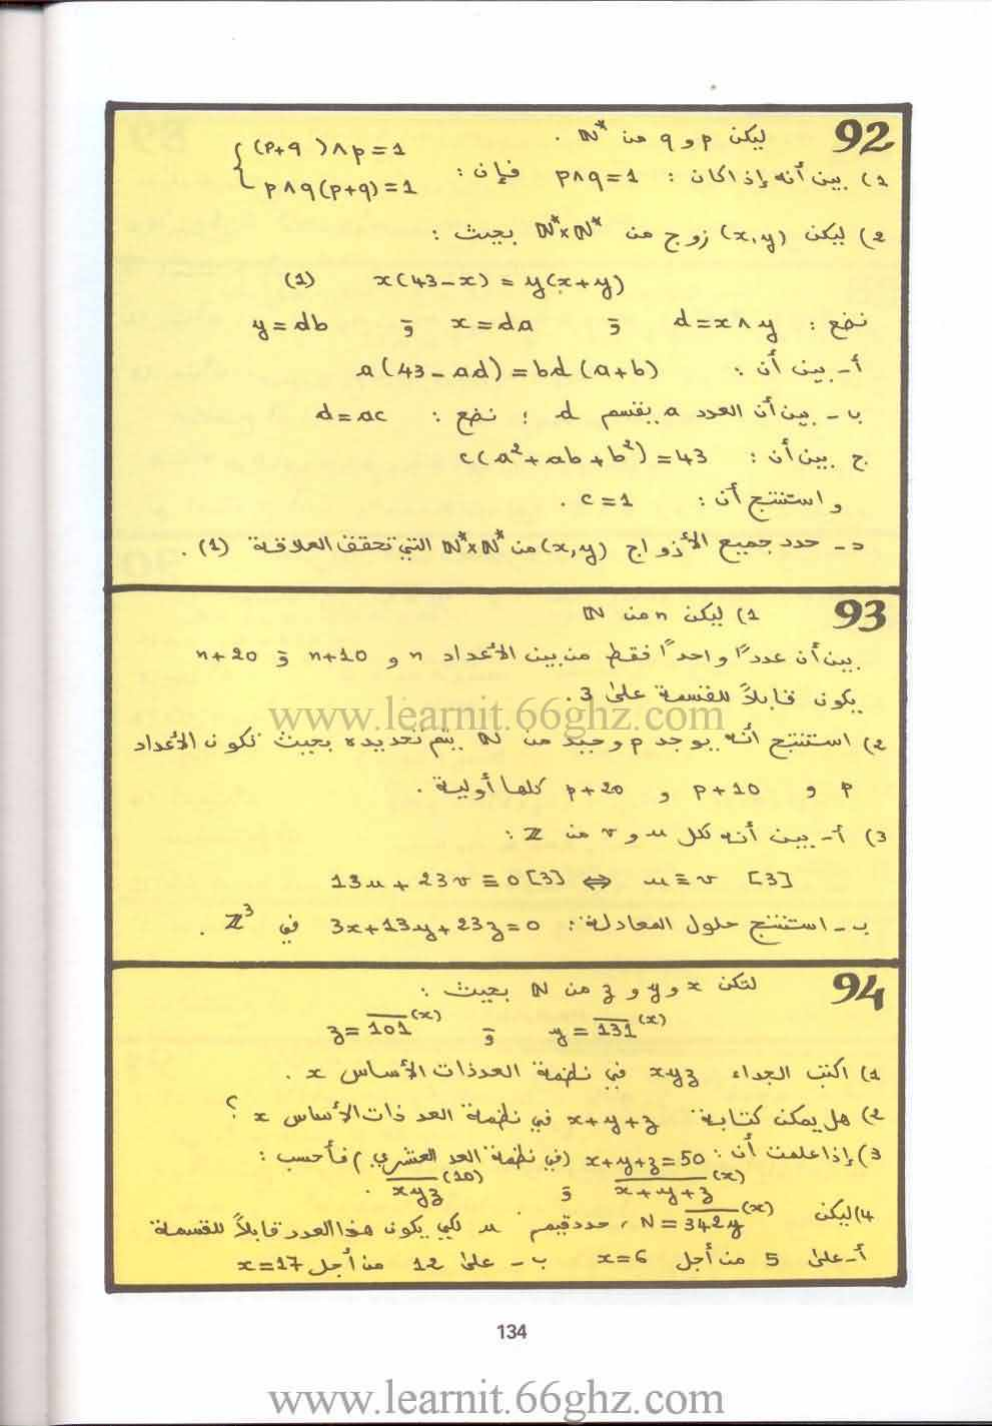 92
ليكن p و q من ℕ* .
1) بين أنه إذا كان : p∧q=1 فإن : { (p+q)∧p=1
p∧q(p+q)=1
2) ليكن (x,y) زوج من ℕ*×ℕ* بحيث :
x(43-x) = y(x+y) (1)
نضع : d=x∧y و x=da و y=db
أ- بين أن : a(43-ad)=bd(a+b)
ب- بين أن العدد a يقسم d ؛ نضع : d=ac
ج بين أن : c(a²+ab+b²)=43
واستنتج أن : c=1 .
د- حدد جميع الأزواج (x,y) من ℕ*×ℕ* التي تحقق العلاقة (1) .
93
1) ليكن n من ℕ
بين أن عددًا واحدًا فقط من بين الأعداد n و n+10 و n+20
يكون قابلاً للقسمة على 3 .
www.learnit.66ghz.com
2) استنتج أنه يوجد p وحيد من ℕ يتم تحديده بحيث تكون الأعداد
p و p+10 و p+20 كلها أولية .
3) أ- بين أنه لكل u و v من ℤ :
13u+23v≡0[3] ⇔ u≡v [3]
ب- استنتج حلول المعادلة : 3x+13y+23z=0 في ℤ³ .
94
لتكن x و y و z من ℕ بحيث :
y=\overline{131}^{(x)} و z=\overline{101}^{(x)}
1) اكتب الجداء xyz في نظمة العد ذات الأساس x .
2) هل يمكن كتابة x+y+z في نظمة العد ذات الأساس x ؟
3) إذا علمت أن : x+y+z=50 (في نظمة العد العشري) فأحسب :
\overline{x+y+z}^{(x)} و \overline{xyz}^{(10)} .
4) ليكن N=\overline{342y}^{(x)} ، حدد قيم u لكي يكون هذا العدد قابلاً للقسمة
أ- على 5 من أجل x=6 ب- على 12 من أجل x=17
134
www.learnit.66ghz.com